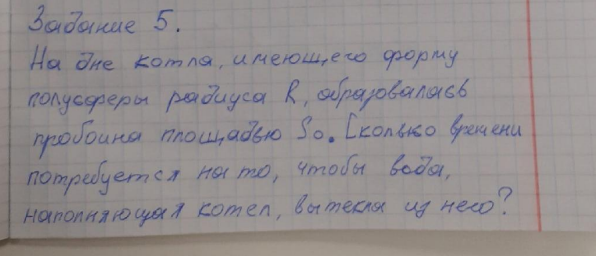 Задание 5.
На дне котла, имеющего форму
полусферы радиуса R, образовалась
пробоина площадью S₀. Сколько времени
потребуется на то, чтобы вода,
наполняющая котел, вытекла из него?